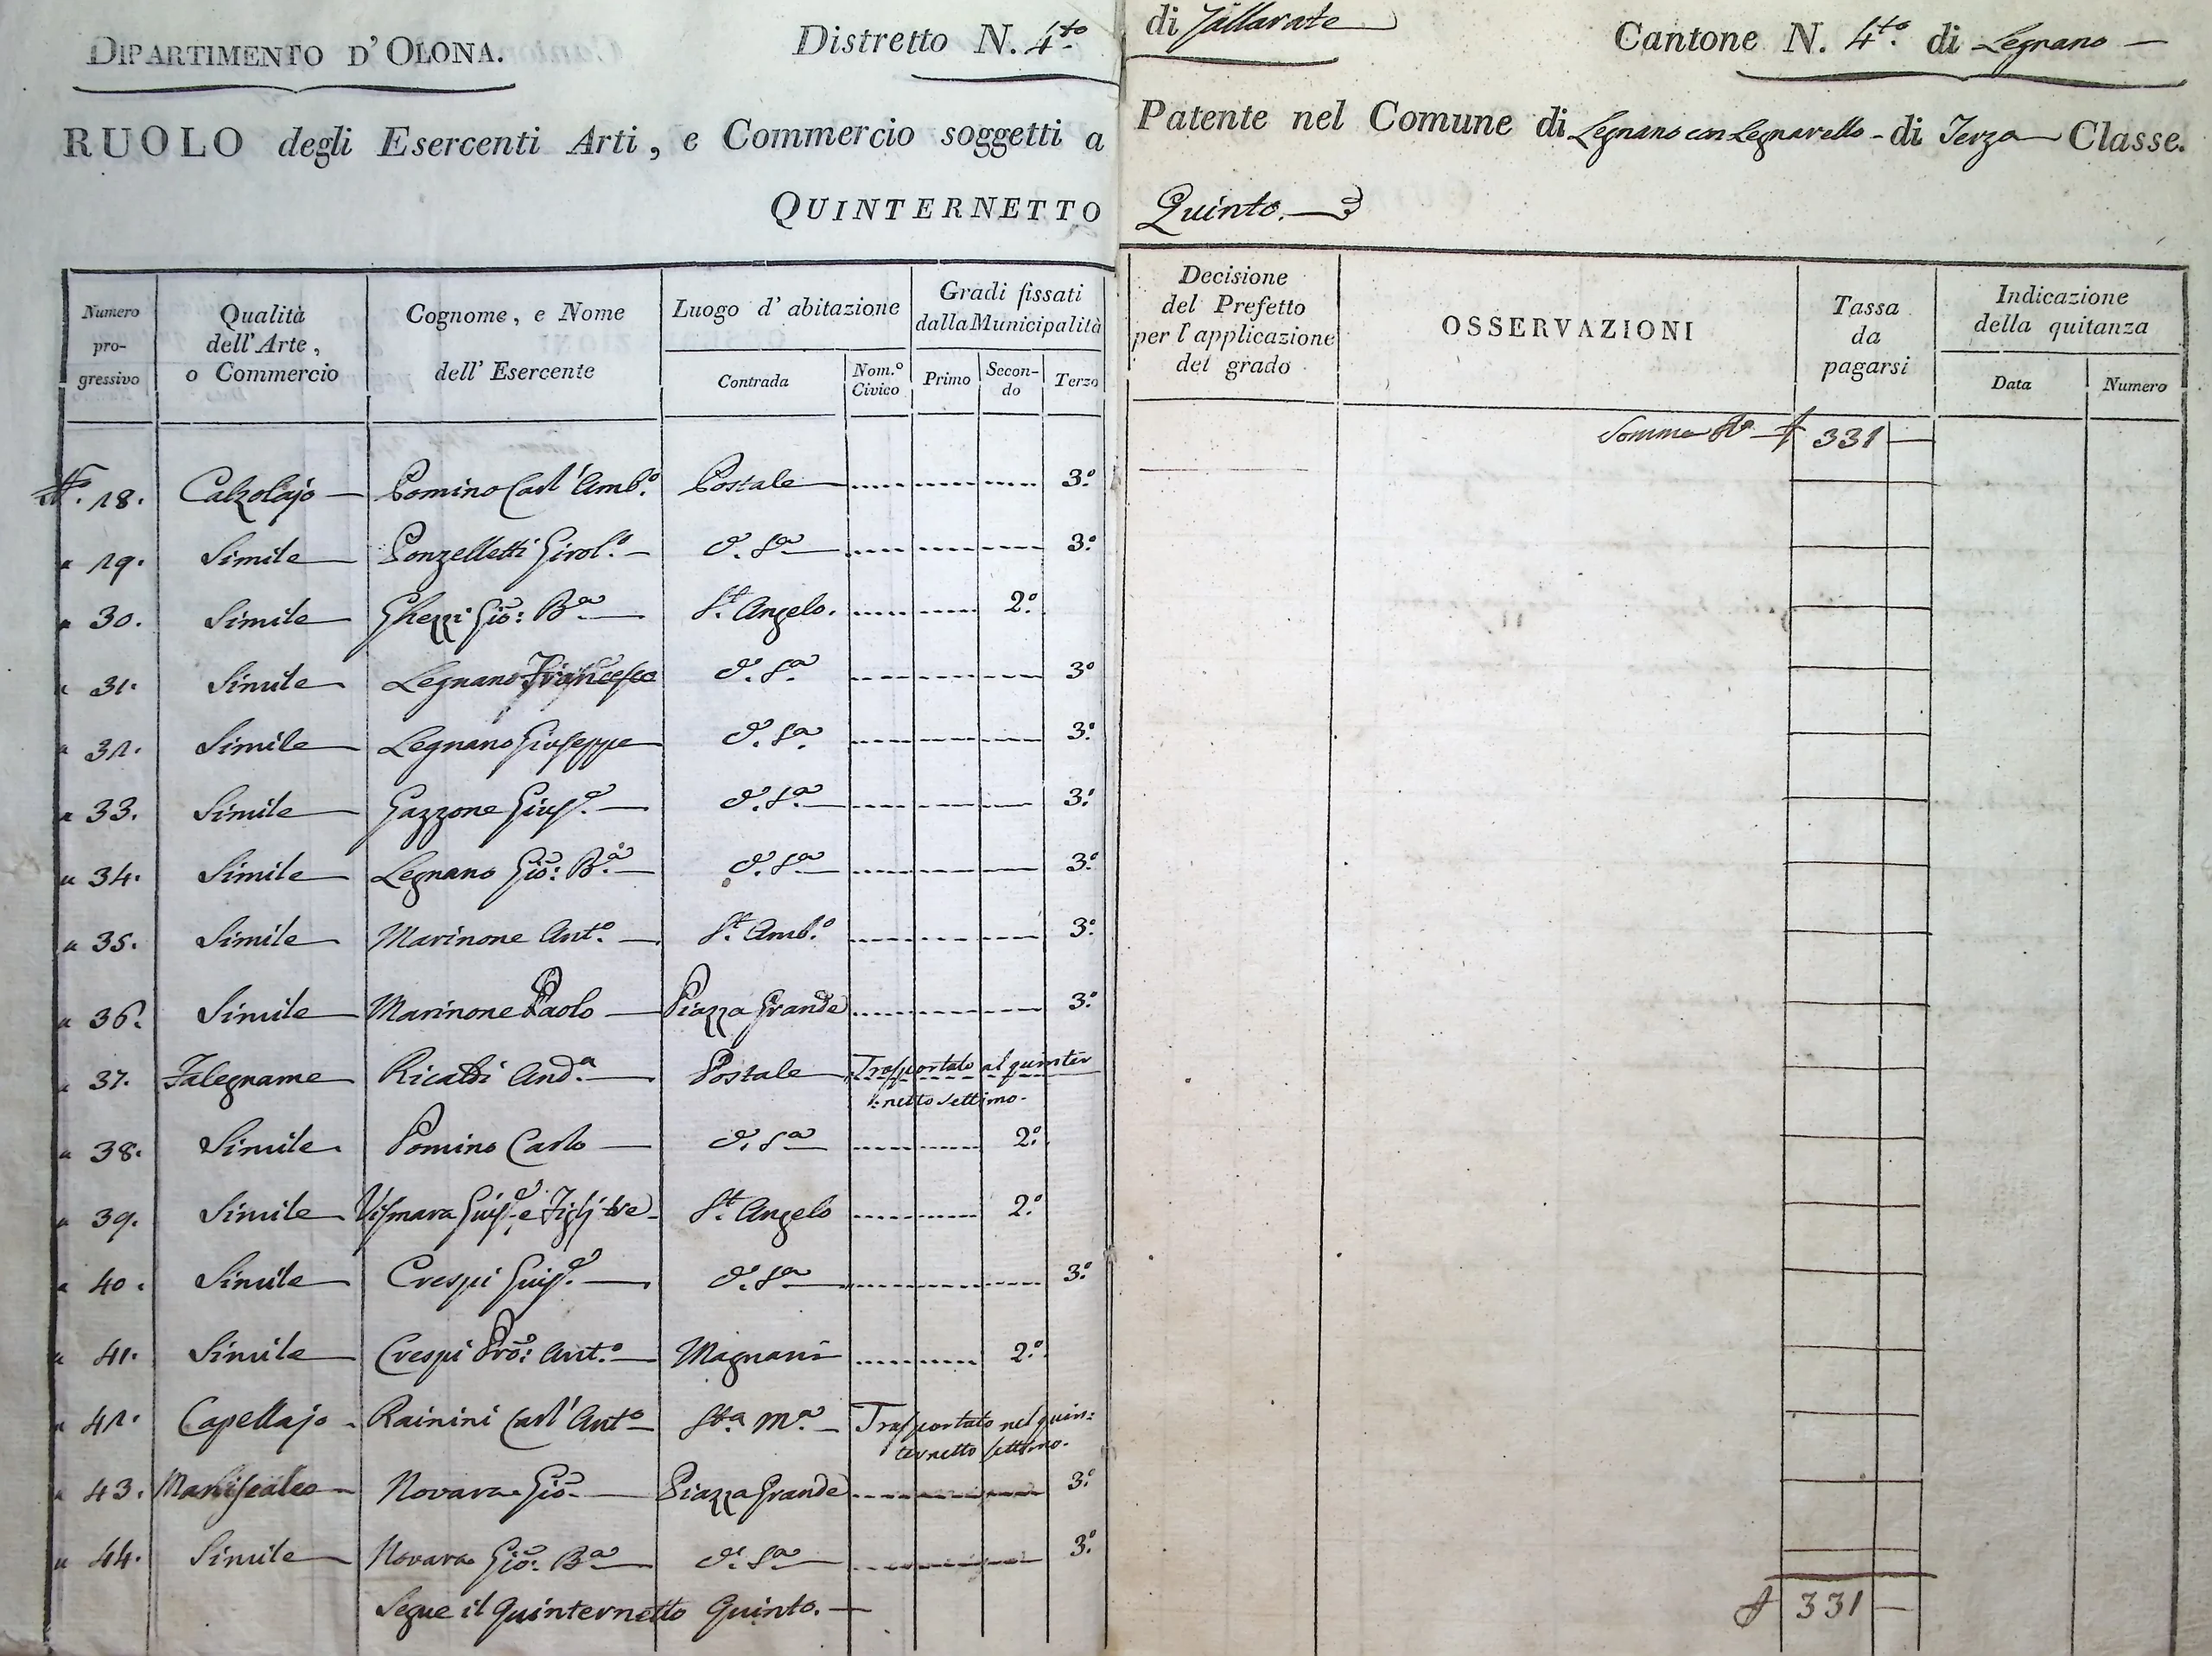 DIPARTIMENTO D' OLONA. Distretto N. 4.to di Gallarate Cantone N. 4.to di Legnano
RUOLO degli Esercenti Arti, e Commercio soggetti a Patente nel Comune di Legnano con Legnarello - di Terza Classe.
QUINTERNETTO Quinto.
Numero progressivo
Qualità dell' Arte, o Commercio
Cognome, e Nome dell' Esercente
Luogo d' abitazione
Contrada
Nom.° Civico
Gradi fissati dalla Municipalità
Primo
Secondo
Terzo
Decisione del Prefetto per l' applicazione del grado
OSSERVAZIONI
Tassa da pagarsi
Indicazione della quitanza
Data
Numero
Somma 331 —
N.° 28. Calzolajo Pomino Carl' Amb.° Postale 3.°
" 29. Simile Ponzelletti Girol.° d.Sa 3.°
" 30. Simile Ghezzi Gio: B.a S.t Angelo. 2.°
" 31. Simile Legnano Francesco d.Sa 3.°
" 32. Simile Legnano Giuseppe d.Sa 3.°
" 33. Simile Gazzone Gius.e d.Sa 3.°
" 34. Simile Legnano Gio: B.a d.Sa 3.°
" 35. Simile Marinone Ant.° S.t Amb.° 3.°
" 36. Simile Marinone Paolo Piazza Grande 3.°
" 37. Falegname Ricaldi And.a Postale Trasportato al quinter
:netto settimo.
" 38. Simile Pomino Carlo d.Sa 2.°
" 39. Simile Vismara Gius.e e Figli tre S.t Angelo 2.°
" 40. Simile Crespi Gius.e d.Sa 3.°
" 41. Simile Crespi Pro: Ant.° Magnani 2.°
" 42. Capellajo Rainini Carl' Ant.° S.ta M.a Trasportato nel quin:
ternetto settimo.
" 43. Maniscalco Novara Gio. Piazza Grande 3.°
" 44. Simile Novara Gio: B.a d.Sa 3.°
Segue il Quinternetto Quinto. — 331 —